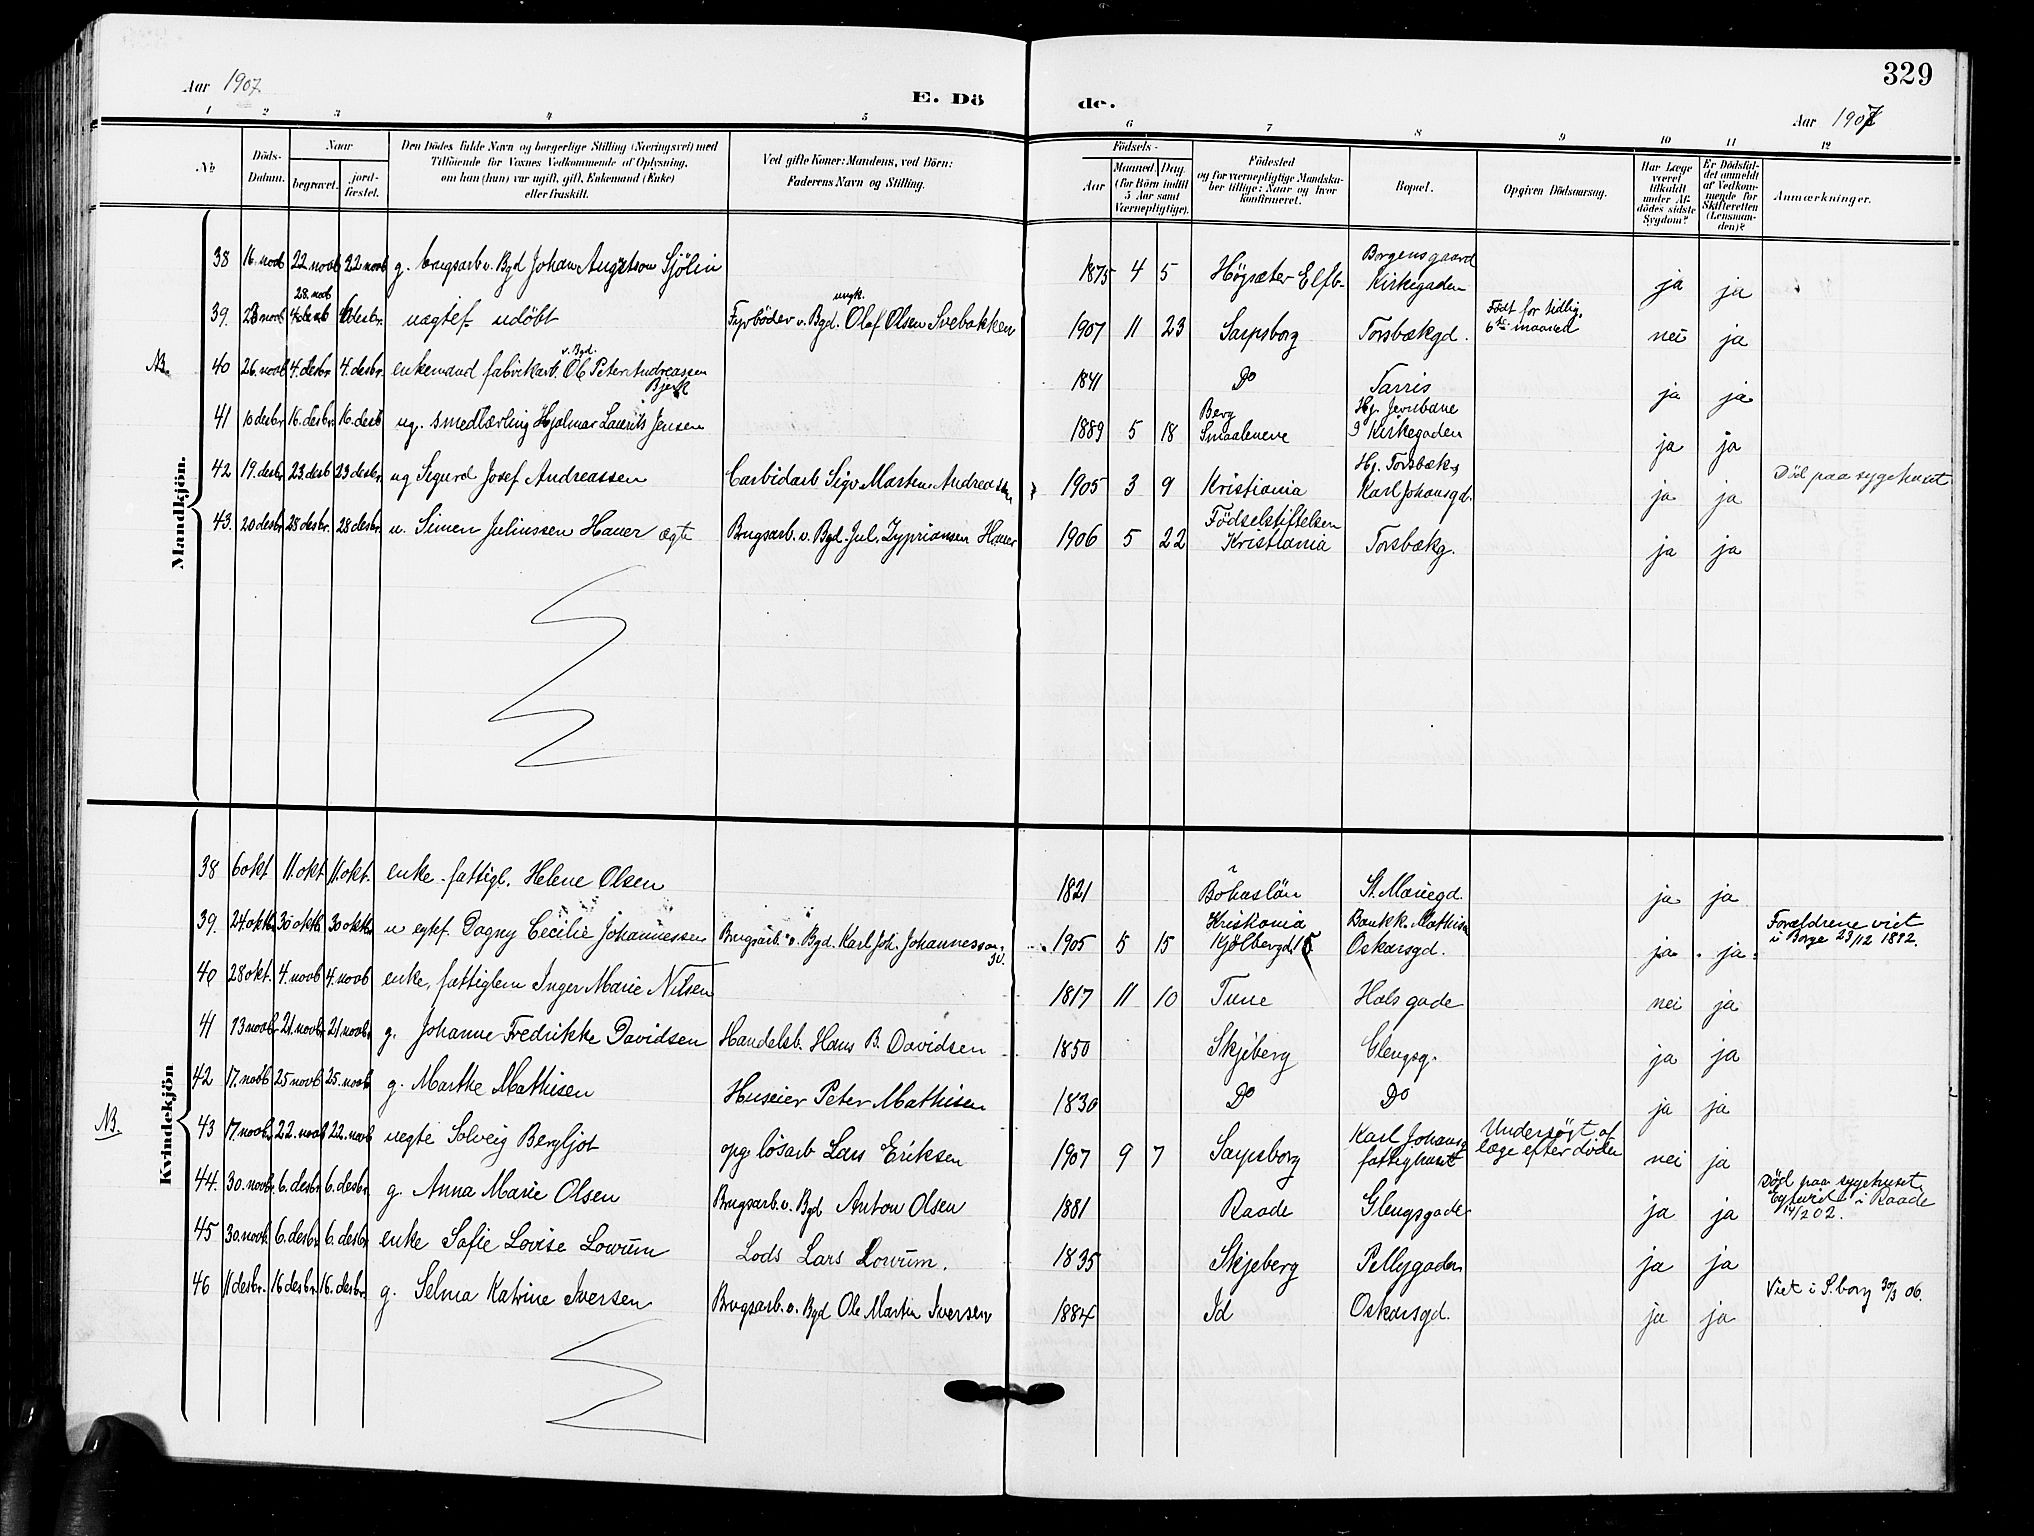 329
Aar 1907.
E. Dö de.
Aar 1907
1 2 3 4 5 6 7 8 9 10 11 12
No
Döds-Datum.
Naar
begravet.
jord-fæstet.
Den Dödes fulde Navn og borgerlige Stilling (Næringsvei) med
Tilföiende for Voxnes Vedkommende af Oplysning,
om han (hun) var ugift, gift, Enkemand (Enke)
eller fraskilt.
Ved gifte Koner: Mandens, ved Börn:
Faderens Navn og Stilling.
Födsels-
Aar
Maaned. Dag.
(for Börn indtil
5 Aar samt
Værnepligtige).
Födested
og for værnepligtige Mandska-
ber tillige: Naar og hvor
konfirmeret.
Bopæl.
Opgiven Dödsaarsag.
Har Læge
været
tilkaldt
under Af-
dödes sidste
Sygdom?
Er Dödsfal-
det anmeldt
af Vedkom-
mende for
Skifteretten
(Lensman-
den)?
Anmærkninger.
Mandkjön.
38 16. novb 22 novb 22 novb g. brugsarb. v. Bgd Johan Augustson Sjölin 1875 4 5 Högsæter Elfb. Borgensgaard Kirkegaden ja ja
39. 23 novb 28. novb 4 desbr. uægtef. udöbt Fyrböder v. Bgd. ungk. Olaf Olsen Svebakken 1907 11 23 Sarpsborg Torsbækgd. Födt for tidlig. 6te maaned nei ja
NB. 40 26. novb 4. desbr. 4. desbr. enkemand fabrikarb. v. Bgd. Ole Peter Andreassen Bjerk 1841 Do Tarris ja ja
41 10 desbr. 16. desbr. 16. desb ug. smedlærling Hjalmar Laurits Jensen 1889 5 18 Berg Smaalenene Hj. Jernbane 3 Kirkegaden ja ja
42 19. desbr. 23. desb 23 desbr. ug Sigurd Josef Andreassen Carbidarb Sigv Martin Andreassen 1905 3 9 Kristiania Hj. Torsbækg Karl Johansgd. ja ja Död paa sygehuset
43. 20 desbr. 28 desbr. 28 desbr. u. Simen Juliussen Hauer ægte Brugsarb. v. Bgd. Jul. Zypriansen Hauer 1906 5 22 Födselstiftelsen Kristiania Torsbækg. ja ja
Kvindekjön
38 6 okt 11. okt 11. okt. enke - fattigl. Helene Olsen 1821 Bohuslän St. Mariegd. ja ja
39. 24. oktb 30 oktb 30 oktb u egtef. Dagny Cecilie Johannessen Brugsarb. v. Bgd. Karl Joh. Johannesson 1905 5 15 Kristiania Kjölbergd 15 Oskarsgd. ja ja Forældrene viet i Borge 23/12 1892.
40 28 okt. 4. novb 4. novb enke, fattiglem Inger Marie Nilsen 1817 11 10 Tune Hals gade nei ja
41 13 novb 21. novb. 21. novb. g. Johanne Fredrikke Davidsen Handelsb. Hans B. Davidsen 1850 Skjeberg Glengsg. ja ja
42 17. novb 25 novb 25. novb g. Marthe Mathisen Huseier Peter Mathisen 1830 Do Do ja ja
NB. 43 17. novb. 22. novb 22. novb uegte Solveig Bergljot opg. lösarb Lars Eriksen 1907 9 7 Sarpsborg Karl Johansg fattighuset Undersögt af læge efter döden nei ja
44. 30. novb. 6. desbr. 6. desbr. g. Anna Marie Olsen Brugsarb. v. Bgd Anton Olsen 1881 Raade Glengsgade ja ja Död paa sygehuset. i Raade
45 30. novb. 6. desbr. 6. desbr enke Sofie Lovise Lowum Lods Lars Lowum. 1835 Skjeberg Pellygaden ja ja
46 11 desbr. 16 desbr. 16. desbr. g. Selma Katrine Iversen Brugsarb. v. Bgd Ole Martin Iversen 1884 Id Oskarsgd. ja ja Viet i S.borg 30/3 06.